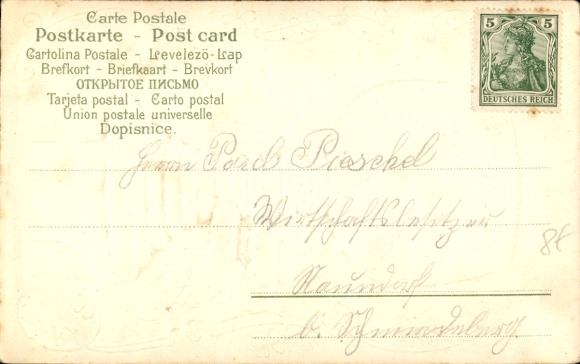 Carte Postale
Postkarte - Post card
Cartolina Postale - Levelező-Lap
Brefkort - Briefkaart - Brevkort
ОТКРЫТОЕ ПИСЬМО
Tarjeta postal - Carto postal
Union postale universelle
Dopisnice.
5 5
DEUTSCHES REICH
Herrn Paul Pieschel
Wirtschaftsbesitzer
Naundorf
b. Schmiedeberg